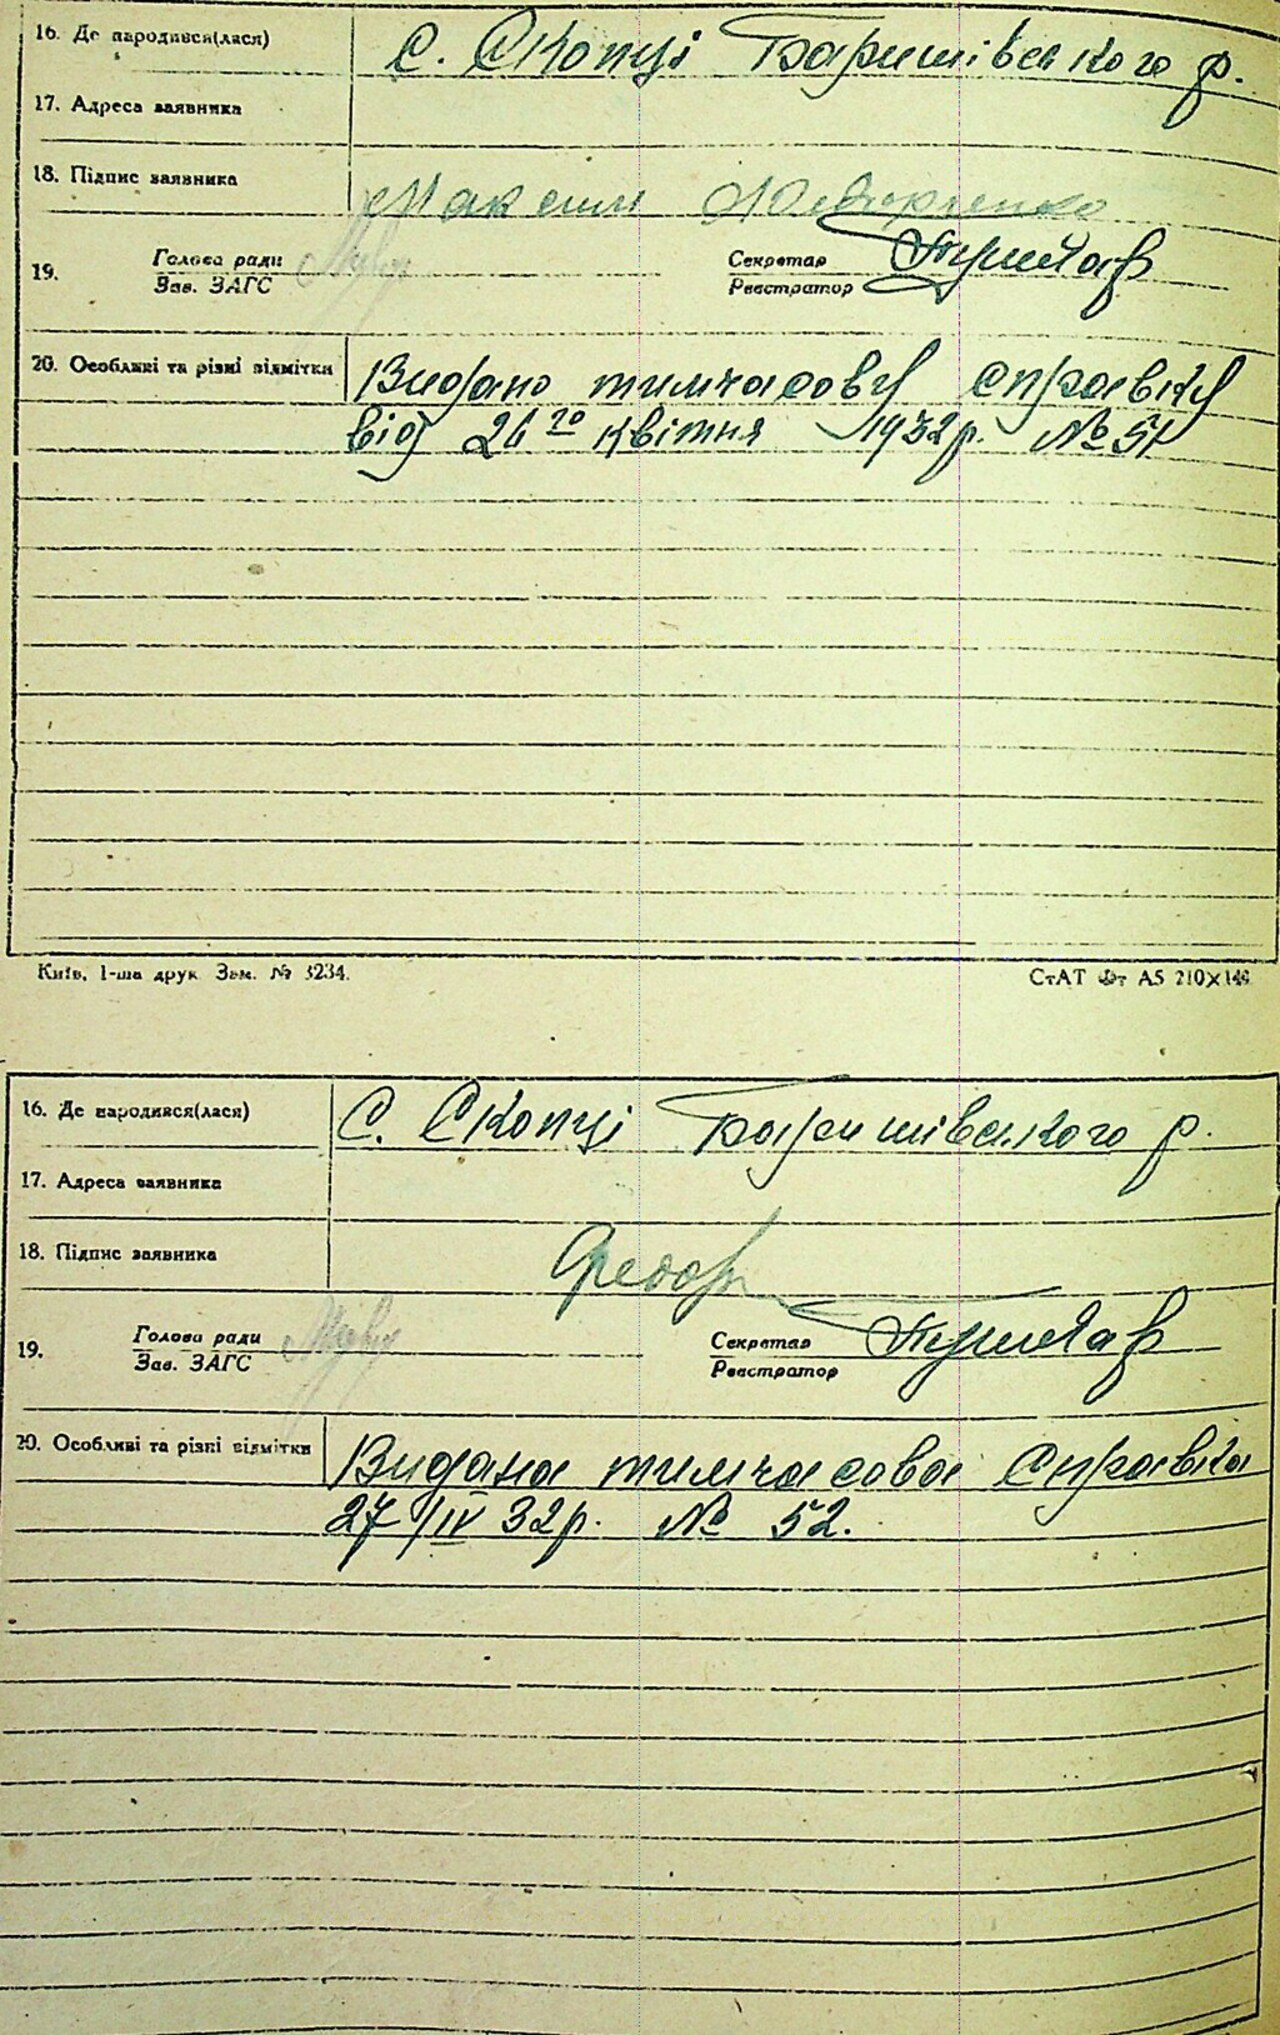 16. Де народився(лася) С. Скопці Баришівського р.
17. Адреса заявника
18. Підпис заявника Максим
19. Голова ради Секретар
Зав. ЗАГС Реєстратор
20. Особливі та різні відмітки Видано тимчасову справку
від 26 го квітня 1932 р. № 51
Київ, 1-ша друк. Зам. № 3234. СтАТ Фт А5 210×149
16. Де народився(лася) С. Скопці Баришівського р.
17. Адреса заявника
18. Підпис заявника Федор
19. Голова ради Секретар
Зав. ЗАГС Реєстратор
20. Особливі та різні відмітки Видана тимчасова справка
27/IV 32 р. № 52.